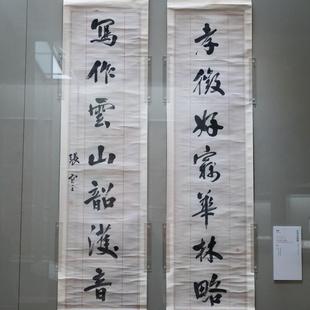 孝徵好竊華林略
寫作雲山韶濩音
張